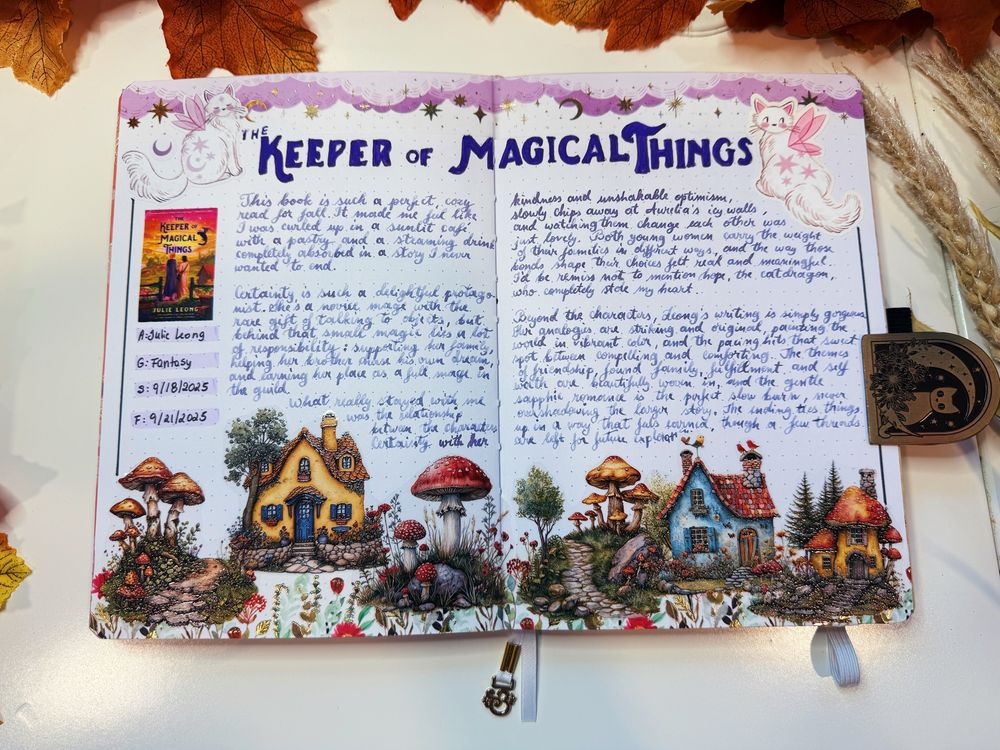 THE KEEPER OF MAGICAL THINGS
THE
KEEPER OF
MAGICAL
THINGS
JULIE LEONG
A: Julie Leong
G: Fantasy
S: 9/18/2025
F: 9/21/2025
This book is such a perfect, cozy
read for fall. It made me feel like
I was curled up in a sunlit café
with a pastry and a steaming drink
completely absorbed in a story I never
wanted to end.
Certainty is such a delightful protago-
nist. She's a novice mage with the
rare gift of talking to objects, but
behind that small magic lies a lot
of responsibility: supporting her family,
helping her brother nurse his own dreams,
and earning her place as a full mage in
the guild.
What really stayed with me
was the relationship
between the characters
Certainty with her
kindness and unshakable optimism,
slowly chips away at Aurelia's icy walls,
and watching them change each other was
just lovely. Both young women carry the weight
of their families in different ways, and the way those
bonds shape their choices felt real and meaningful.
I'd be remiss not to mention hope, the catdragon,
who completely stole my heart.
Beyond the characters, Leong's writing is simply gorgeous
Her analogies are striking and original, painting the
world in vibrant color, and the pacing hits that sweet
spot between compelling and comforting. The themes
of friendship, found family, fulfillment, and self
wealth are beautifully woven in, and the gentle
sapphic romance is the perfect slow burn, never
overshadowing the larger story. The ending ties things
up in a way that feels earned, though a few threads
are left for future exploration